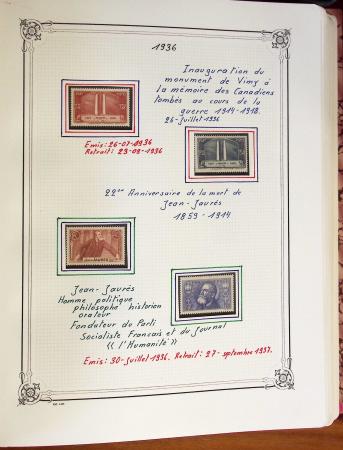 1936
Inauguration du
monument de Vimy à
la mémoire des Canadiens
tombés au cours de la
guerre 1914-1918.
26-Juillet 1936
Emis: 26-07-1936
Retrait: 23-09-1936
22ème Anniversaire de la mort de
Jean-Jaurès
1859-1914
Jean-Jaurès
Homme politique
philosophe historien
orateur
Fondateur du Parti
Socialiste Français et du Journal
<< l'Humanité >>
Emis: 30-Juillet 1936. Retrait: 27-septembre 1937.